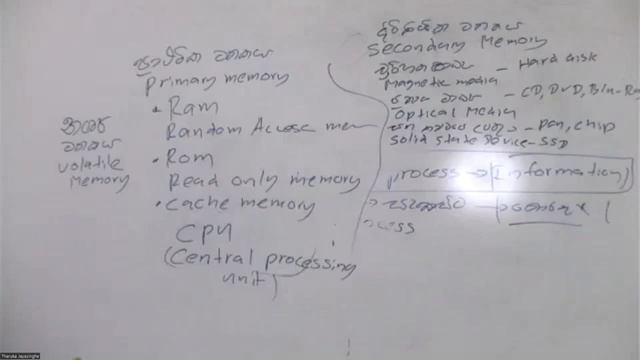 ප්‍රාථමික මතකය
primary memory
• Ram
Random Access mem
• Rom
Read only memory
• Cache memory
CPU
(Central processing
unit)
මතකය
volatile
Memory
ද්විතීයික මතකය
Secondary Memory
– Hard disk
Magnetic media
– CD, DVD, Blu-Ra
Optical Media
– Pen, Chip
Solid State Device – SSD
process → (Information)
Tharuka Jayasinghe